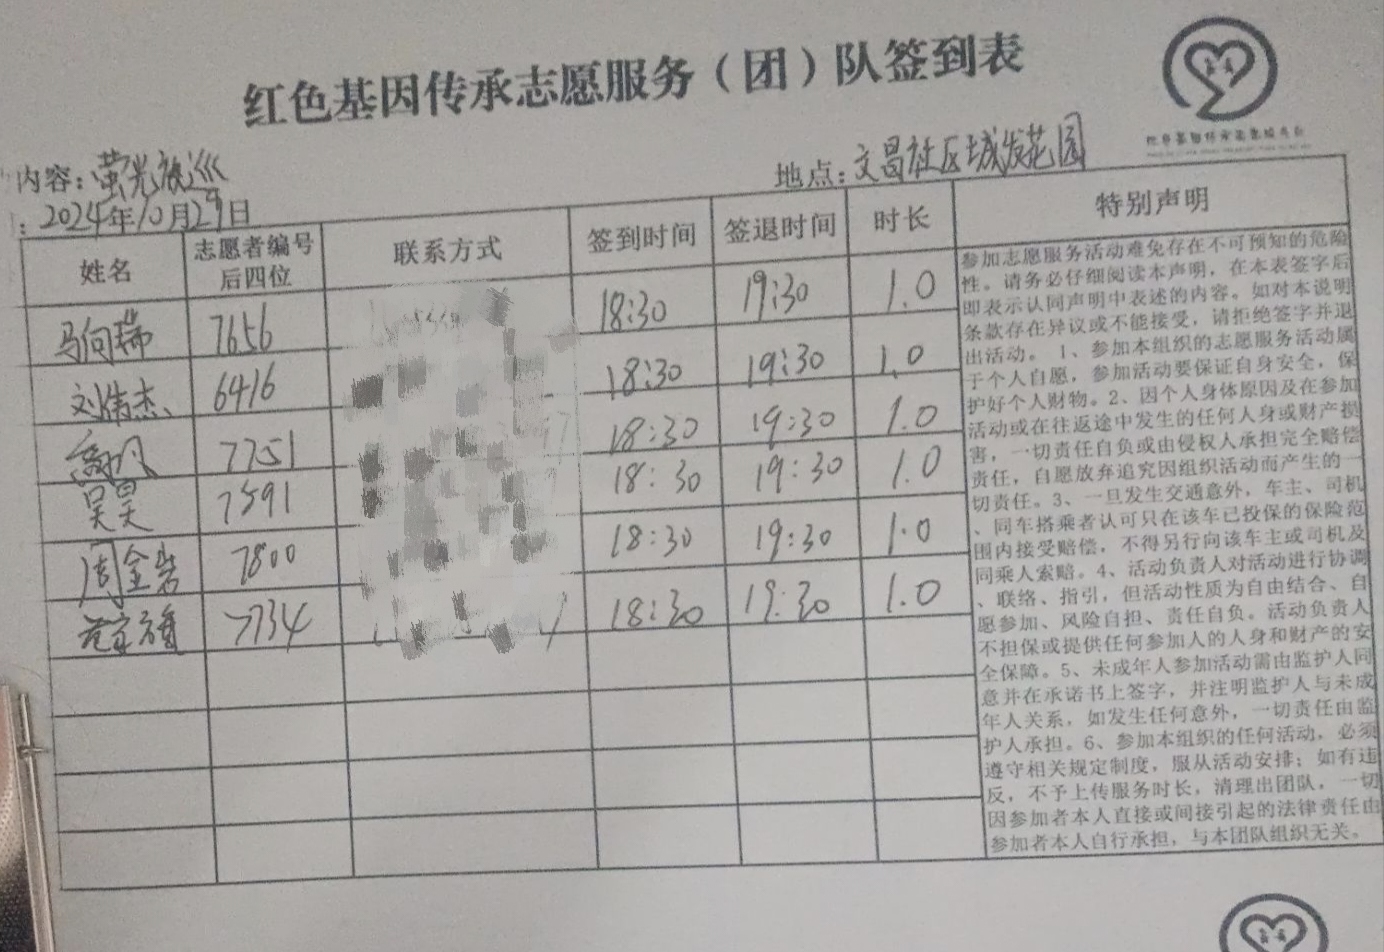 红色基因传承志愿服务（团）队签到表
内容：萤光夜巡
地点：文昌社区城发花园
：2024年10月29日
姓名 志愿者编号后四位 联系方式 签到时间 签退时间 时长 特别声明
马向瑞 7656 18:30 19:30 1.0
刘伟杰 6416 18:30 19:30 1.0
7751 18:30 19:30 1.0
吴昊 7591 18:30 19:30 1.0
周金岩 7800 18:30 19:30 1.0
7734 18:30 19:30 1.0
参加志愿服务活动难免存在不可预知的危险
性。请务必仔细阅读本声明，在本表签字后
即表示认同声明中表述的内容。如对本说明
条款存在异议或不能接受，请拒绝签字并退
出活动。 1、参加本组织的志愿服务活动属
于个人自愿，参加活动要保证自身安全，保
护好个人财物。2、因个人身体原因及在参加
活动或在往返途中发生的任何人身或财产损
害，一切责任自负或由侵权人承担完全赔偿
责任，自愿放弃追究因组织活动而产生的一
切责任。3、一旦发生交通意外，车主、司机
、同车搭乘者认可只在该车已投保的保险范
围内接受赔偿，不得另行向该车主或司机及
同乘人索赔。4、活动负责人对活动进行协调
、联络、指引，但活动性质为自由结合、自
愿参加、风险自担、责任自负。活动负责人
不担保或提供任何参加人的人身和财产的安
全保障。5、未成年人参加活动需由监护人同
意并在承诺书上签字，并注明监护人与未成
年人关系，如发生任何意外，一切责任由监
护人承担。6、参加本组织的任何活动，必须
遵守相关规定制度，服从活动安排；如有违
反，不予上传服务时长，清理出团队，一切
因参加者本人直接或间接引起的法律责任由
参加者本人自行承担，与本团队组织无关。